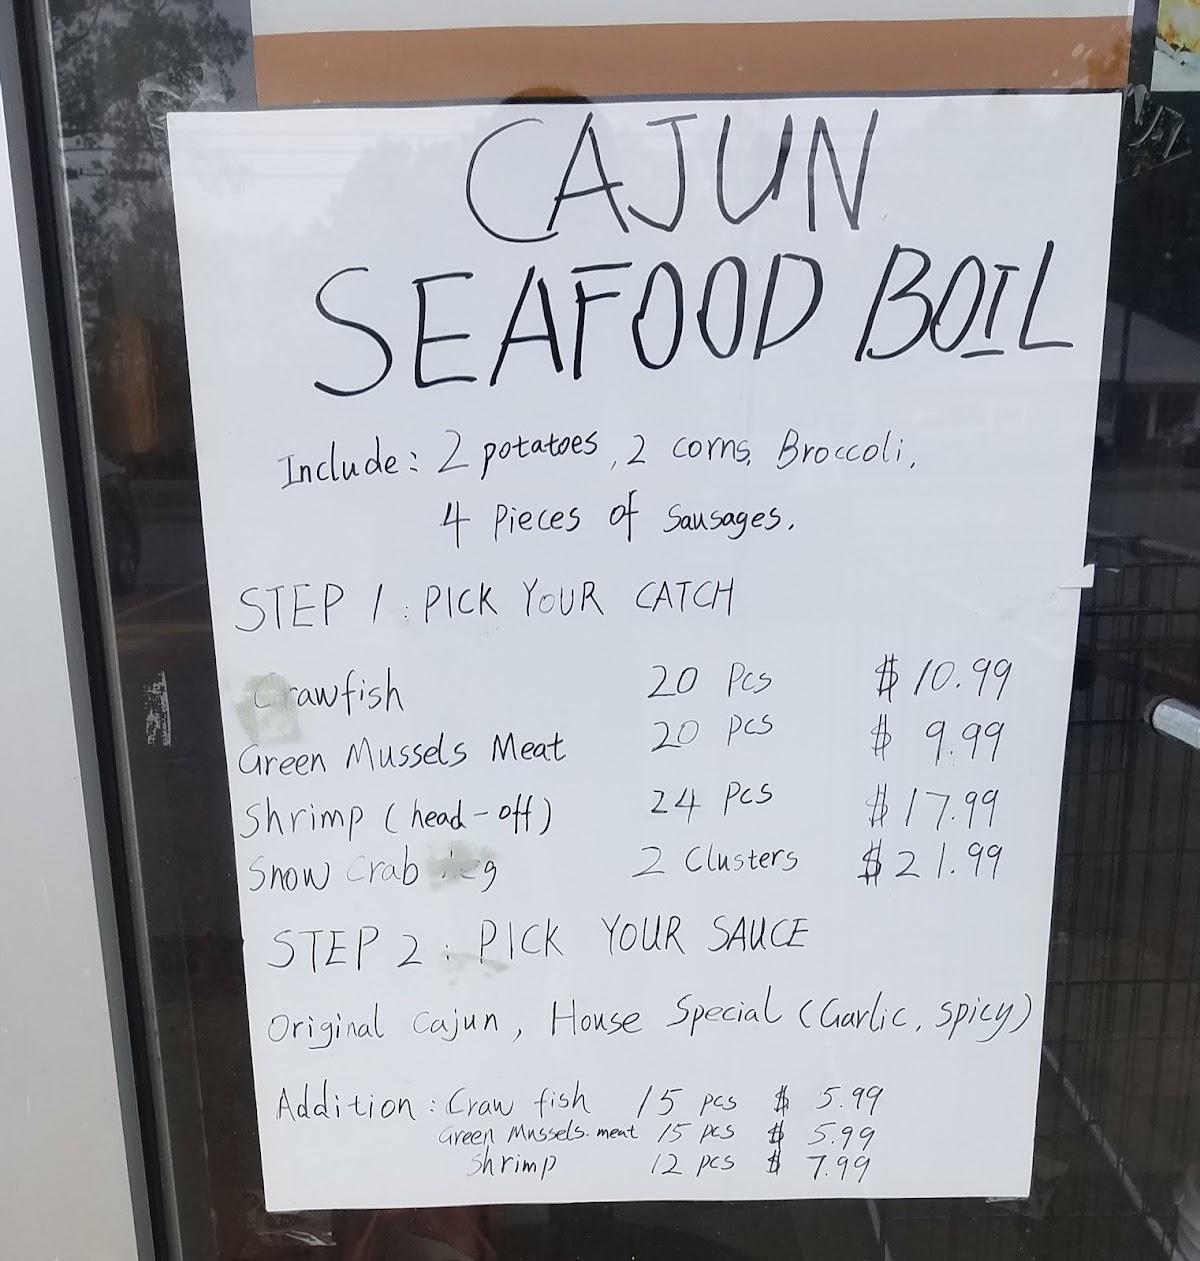 CAJUN
SEAFOOD BOIL
Include: 2 potatoes, 2 corns, Broccoli,
4 pieces of sausages.
STEP 1: PICK YOUR CATCH
Crawfish 20 Pcs $10.99
Green Mussels Meat 20 pcs $ 9.99
Shrimp (head-off) 24 pcs $17.99
Snow Crab leg 2 Clusters $21.99
STEP 2: PICK YOUR SAUCE
Original Cajun, House Special (Garlic, spicy)
Addition: Craw fish 15 pcs $ 5.99
Green Mussels meat 15 pcs $ 5.99
Shrimp 12 pcs $ 7.99